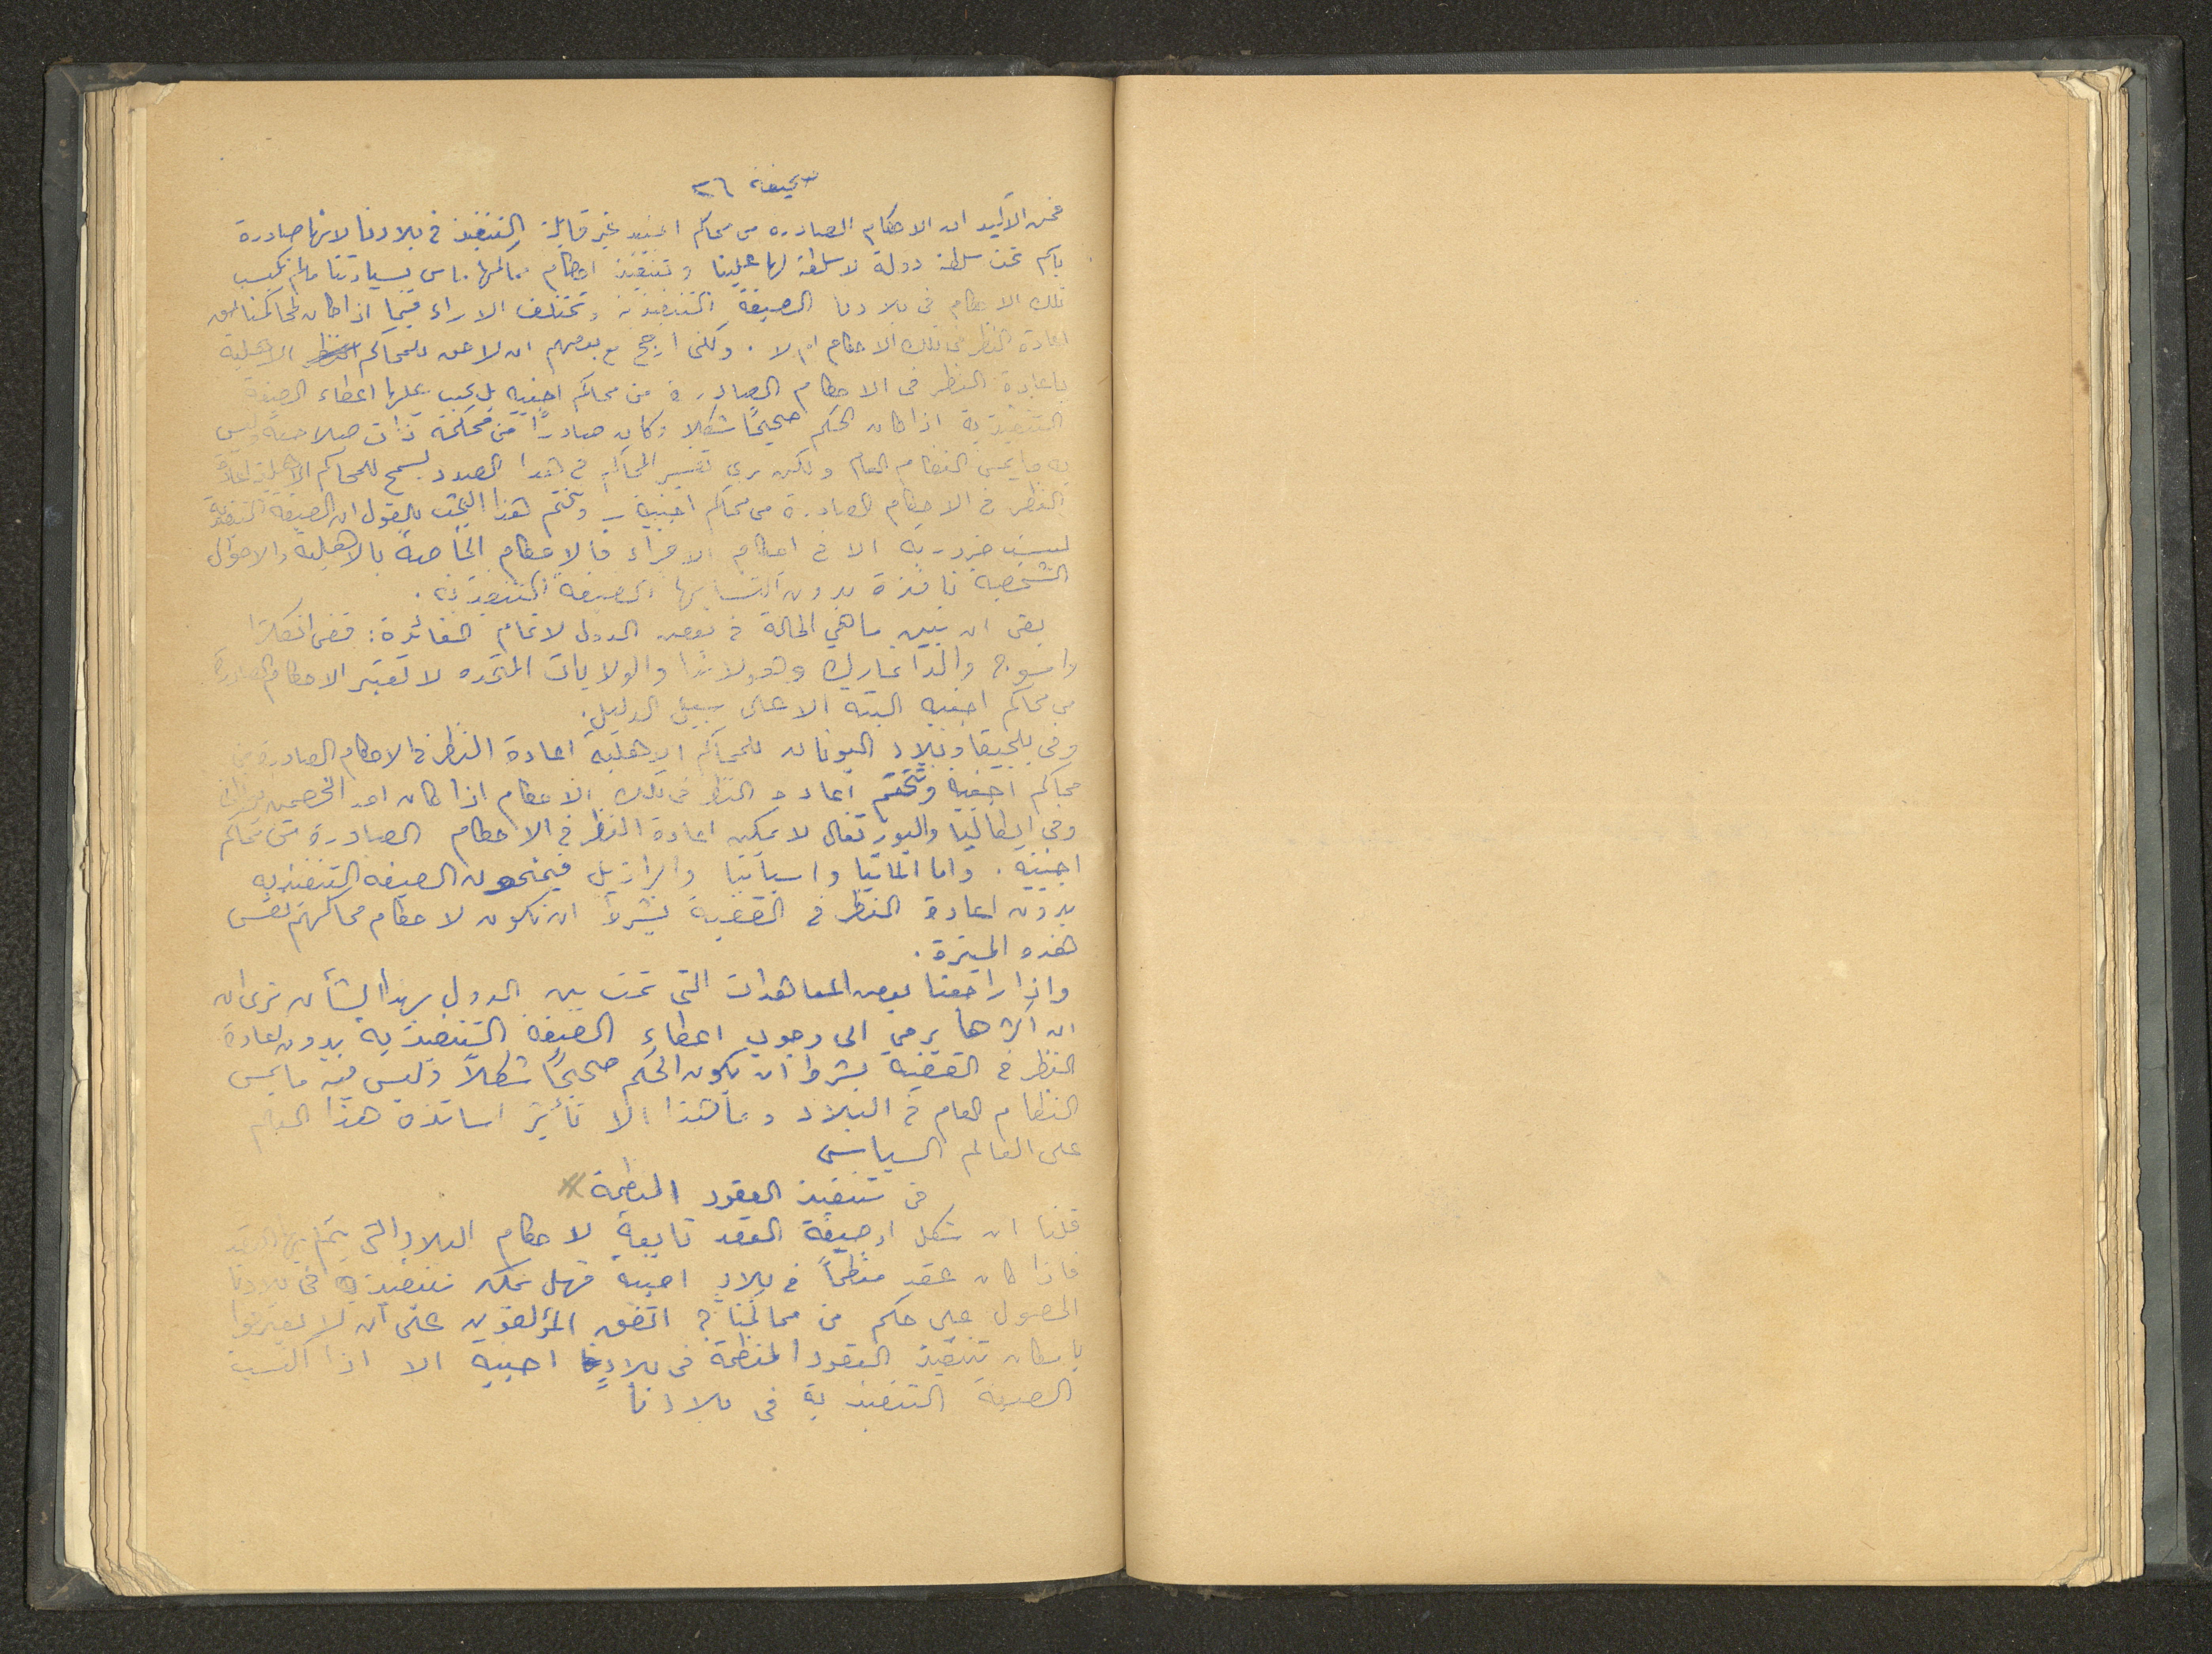 صحيفة ٣٦
فمن الأكيد ان الاحكام الصادره من محاكم اجنبيه غير قابلة التنفيذ في بلادنا لانها صادرة
باسم تحت سلطة دولة لا سلطة لها علينا وتنفيذ احكام محاكمها ماس بسيادتنا مالم تكسب
تلك الاحكام في بلادنا الصيغة التنفيذية وتختلف الاراء فيما اذا كان لمحاكمنا حق
اعادة النظر في تلك الاحكام ام لا . ولكني ارجح مع بعضهم ان لا حق للمحاكم الاهلية
باعادة النظر في الاحكام الصادرة من محاكم اجنبيه بل يجب عليها اعطاء الصيغة
التنفيذية اذا كان الحكم صحيحاً شكلا وكان صادراً من محكمة ذات صلاحية وليس
به ما يمس النظام العام ولكن سير المحاكم في هذا الصدد يسمح للمحاكم الاهلية اعادة
النظر في الاحكام الصادرة من محاكم اجنبية ونختم هذا البحث بالقول ان الصيغة التنفيذية
ليست ضروريه الا في احكام الاجراء فالاحكام الخاصة بالاهلية والاحوال
الشخصيه نافذة بدون اكتسابها الصيغة التنفيذيه .
بقى ان نبين ما هي الحالة في بعض الدول لاتمام الفائدة : ففي انكلترا
واسوج والدانمارك وهولاندا والولايات المتحده لا تعتبر الاحكام الصادرة
من محاكم اجنبيه البته الا على سبيل الدليل .
وفي بلجيقا وبلاد اليونان للمحاكم الاهلية اعادة النظر في الاحكام الصادرة من
محاكم اجنبيه وتتحتم اعادة النظر في تلك الاحكام اذا كان احد الخصمين
وفي ايطاليا والبورتغال لا يمكن اعادة النظر في الاحكام الصادرة من محاكم
اجنبيه . واما المانيا واسبانيا والبرازيل فيمنحون الصيغه التنفيذيه
بدون اعادة النظر في القضية بشرط ان تكون لاحكام محاكمهم نفس
هذه الميزة .
واذا راجعنا بعض المعاهدات التي تمت بين الدول بهذا الشأن نرى ان
ان اكثرها يرمي الى وجوب اعطاء الصيغة التنفيذية بدون اعادة
النظر في القضية بشرط ان يكون الحكم صحيحاً شكلاً وليس فيه ما يمس
النظام العام في البلاد وما هذا الا تأثير اساتذة هذا العلم
على العالم السياسي
في تنفيذ العقود المنظمة
قلنا ان شكل او صيغة العقد تابعة لاحكام البلاد التي يتم بها العقد
فاذا كان عقد منظماً في بلاد اجنبية فهل يمكن تنفيذه في بلادنا
الحصول على حكم من محاكمنا ? اتفق المؤلفون على ان لا يعترفوا
بامكان تنفيذ العقود المنظمة في بلاد اجنبيه الا اذا اكتسبت
الصيغة التنفيذية في بلادنا